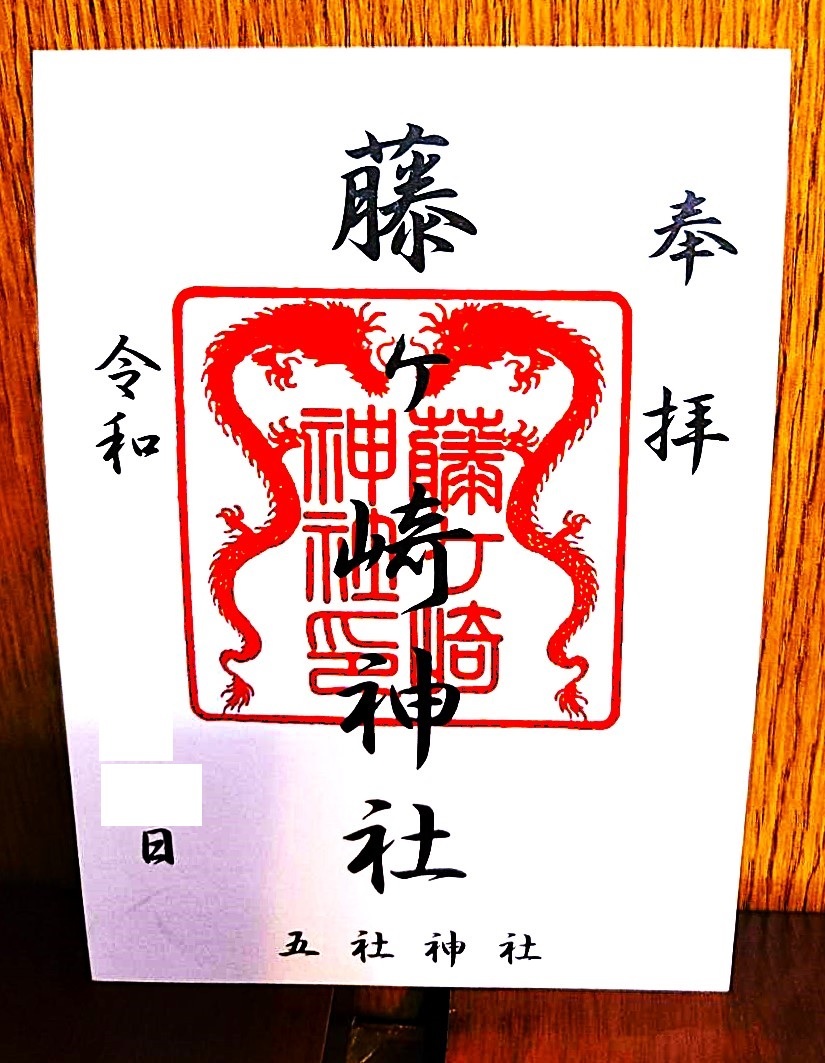 奉拝
藤ケ崎神社
藤ケ崎
神社印
令和
日
五社神社